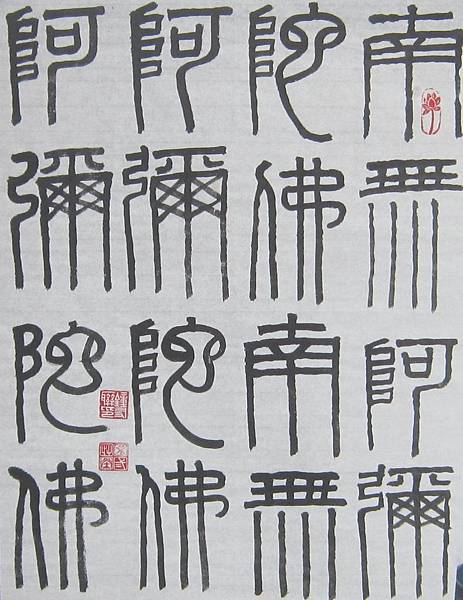 南無阿彌
陀佛南無
阿彌陀佛
阿彌陀佛